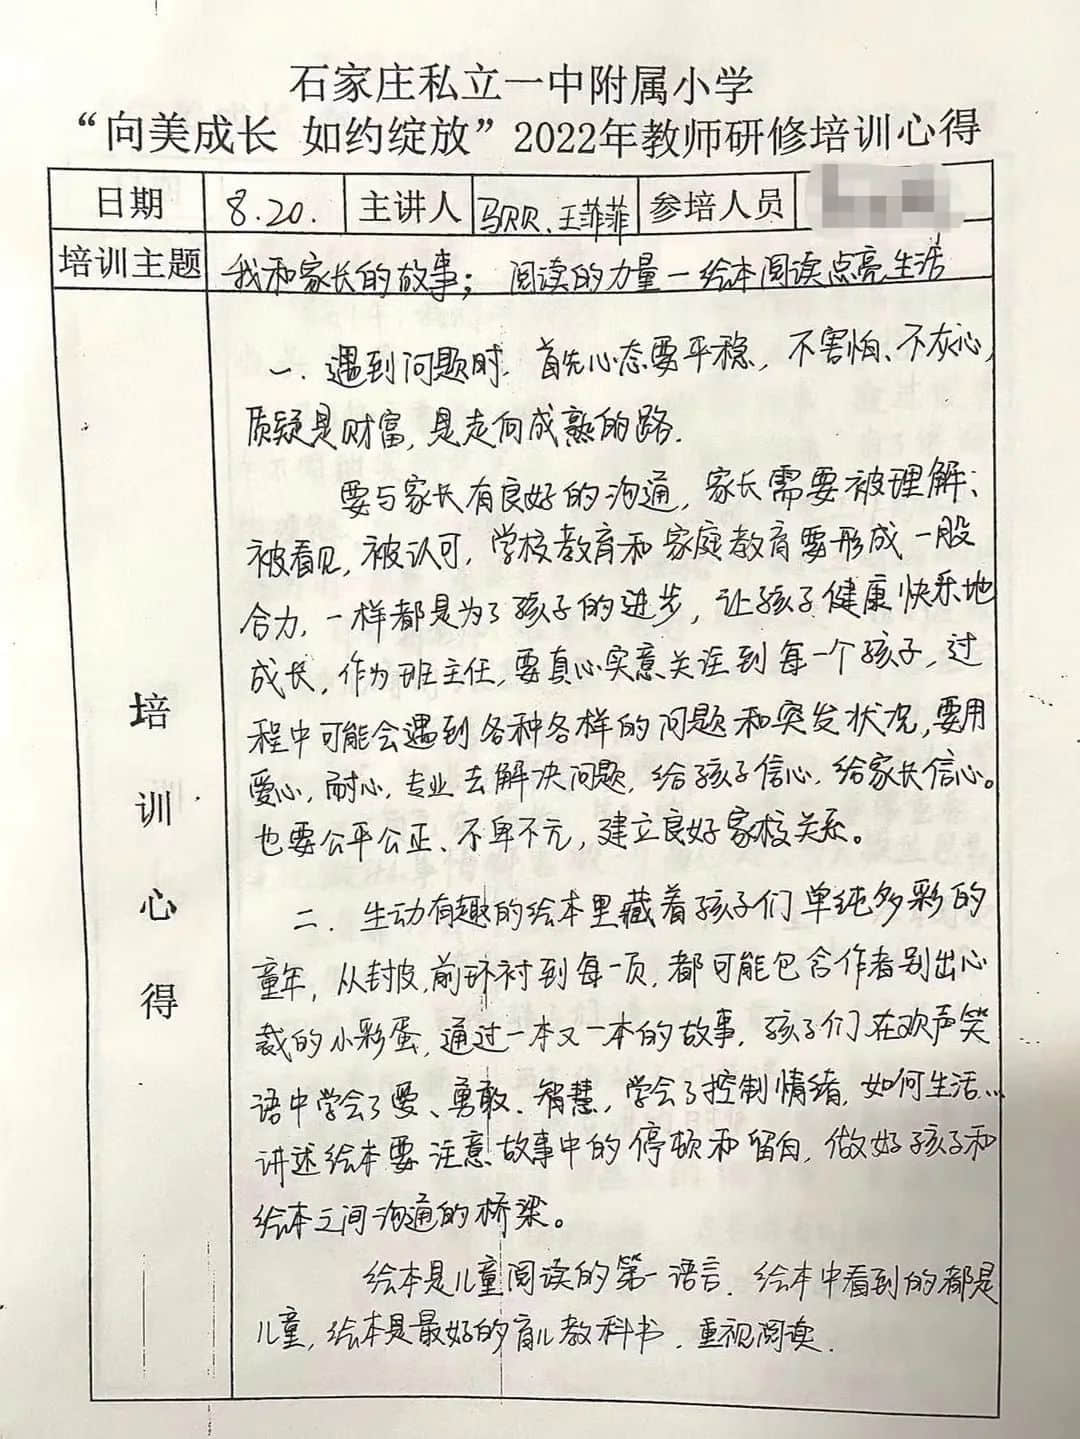 石家庄私立一中附属小学
“向美成长 如约绽放”2022年教师研修培训心得
日期 8.20. 主讲人 马RR、王菲菲 参培人员
培训主题 我和家长的故事; 阅读的力量—绘本阅读点亮生活
培训心得
一. 遇到问题时. 首先心态要平稳, 不害怕、不灰心,
质疑是财富, 是走向成熟的路.
要与家长有良好的沟通, 家长需要被理解;
被看见, 被认可, 学校教育和家庭教育要形成一股
合力, 一样都是为了孩子的进步, 让孩子健康快乐地
成长, 作为班主任, 要真心实意关注到每一个孩子, 过
程中可能会遇到各种各样的问题和突发状况, 要用
爱心, 耐心, 专业去解决问题, 给孩子信心, 给家长信心。
也要公平公正、不卑不亢, 建立良好家校关系。
二. 生动有趣的绘本里藏着孩子们单纯多彩的
童年, 从封皮, 前环衬到每一页, 都可能包含作者别出心
裁的小彩蛋, 通过一本又一本的故事, 孩子们在欢声笑
语中学会了爱、勇敢. 智慧, 学会了控制情绪, 如何生活...
讲述绘本要注意故事中的停顿和留白, 做好孩子和
绘本之间沟通的桥梁。
绘本是儿童阅读的第一语言. 绘本中看到的都是
儿童, 绘本是最好的育儿教科书. 重视阅读.